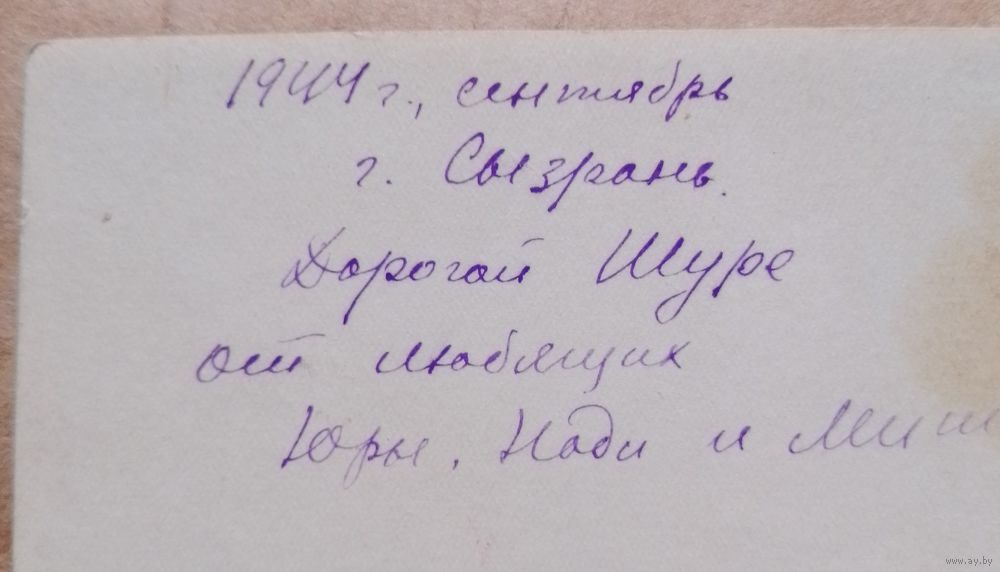 1944 г., сентябрь
г. Сызрань.
Дорогой Шуре
от любящих
Юры, Нади и
www.ay.by